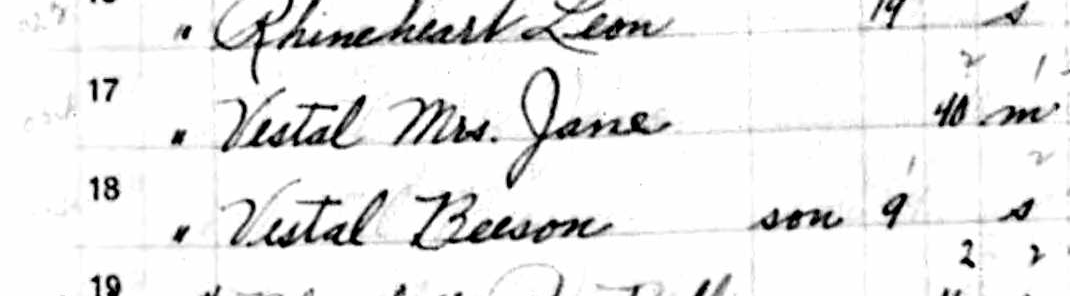 " Rhineheart Leon 19 s
2 1
17
" Vestal Mrs. Jane 40 m
1 2
18
" Vestal Beeson son 9 s
2 2
19